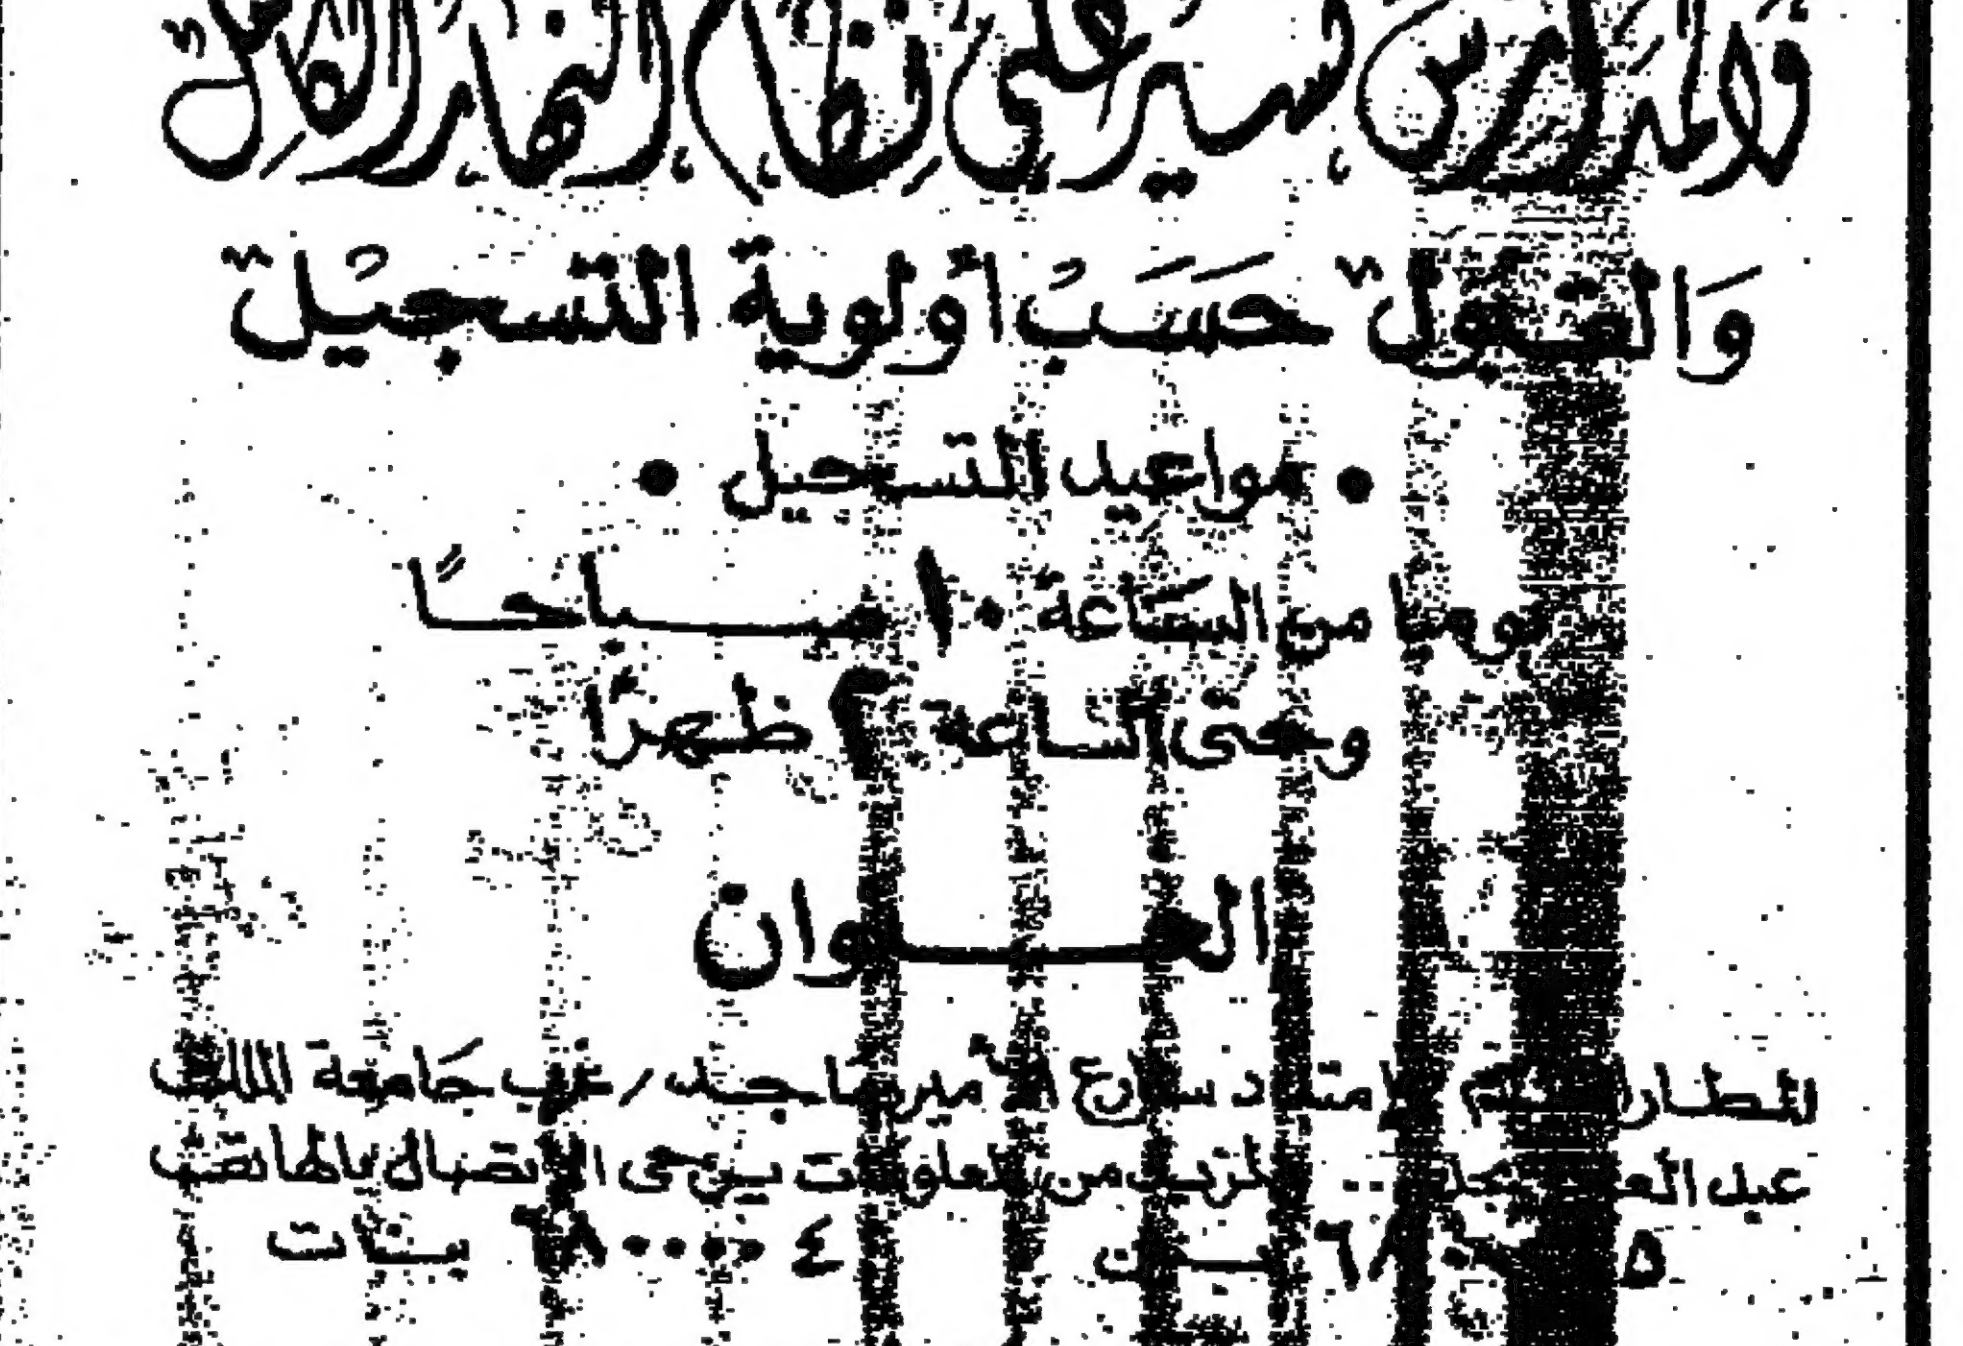 والمدارس تسير على نظام النهار الكامل
وَالقبُول حَسَبْ أولوية التسجيْل
• مواعيد التسجيل •
يوميا من السَاعة ١٠ صباحًا
وحتى الساعة ٢ ظهرًا
العنوان
المطار القديم امتداد شارع الأمير ماجد / غرب جَامعة الملك
عبد العزيز بجدة .. للمزيد من المعلومات يرجى الإتصال بالهاتف
بنين ٤ بنات